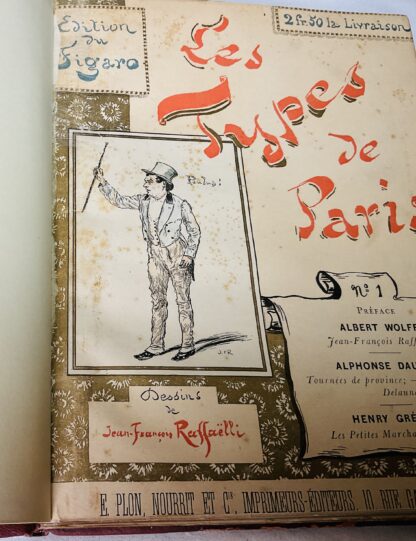 Edition
du
Figaro
2 fr. 50 la Livraison
Les
Types
de
Paris
J.F.R
Dessins
de
Jean-François Raffaëlli
N° 1
PRÉFACE
ALBERT WOLFF
Jean-François Raff
ALPHONSE DAU
Tournées de province;
Delaun
HENRY GRÉ
Les Petites March
E. PLON, NOURRIT ET Cie, IMPRIMEURS-ÉDITEURS, 10 RUE GA